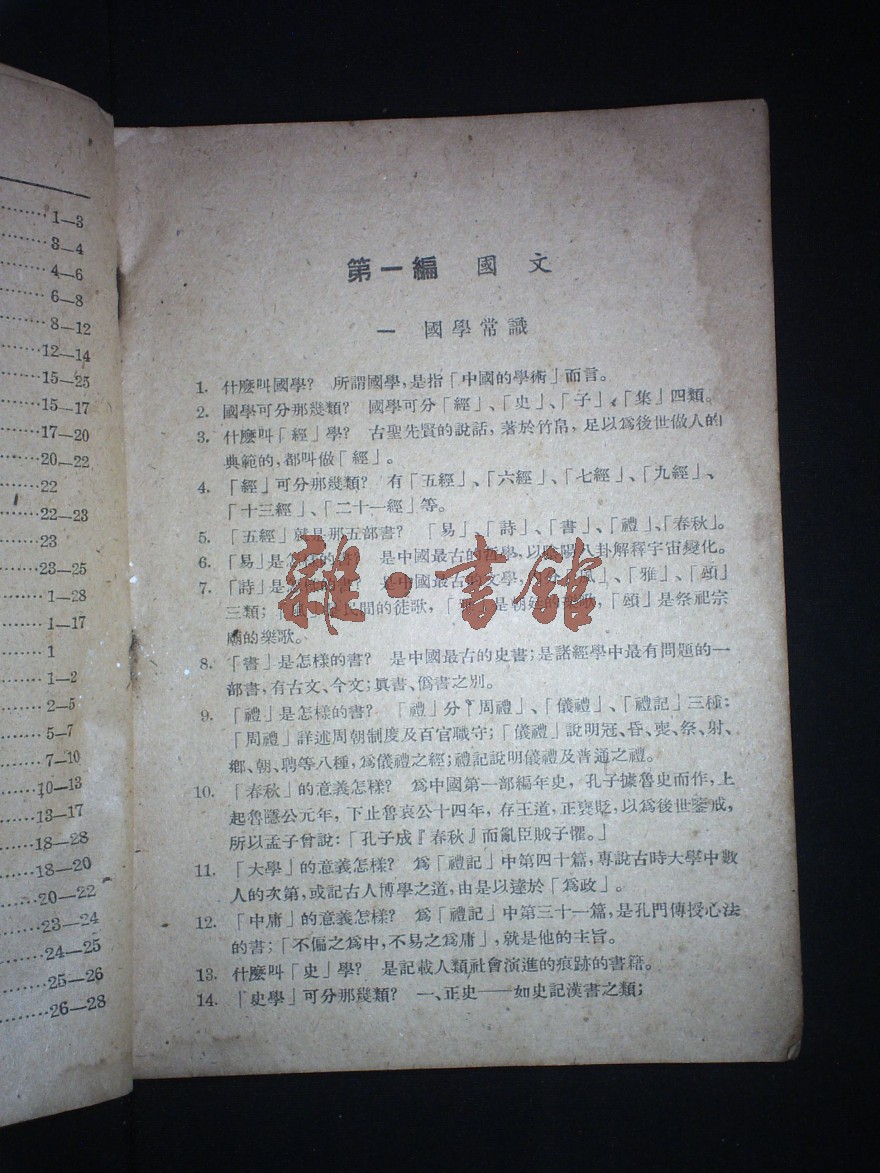 1—3
3—4
4—6
6—8
8—12
12—14
15—25
15—17
17—20
20—22
22
22—23
23
23—25
1—28
1—17
1
1—2
2—5
5—7
7—10
10—13
13—17
18—28
18—20
20—22
23—24
24—25
25—26
26—28
第一編 國文
一 國學常識
1. 什麽叫國學? 所謂國學,是指「中國的學術」而言。
2. 國學可分那幾類? 國學可分「經」、「史」、「子」、「集」四類。
3. 什麽叫「經」學? 古聖先賢的說話,著於竹帛,足以爲後世做人的
典範的,都叫做「經」。
4. 「經」可分那幾類? 有「五經」、「六經」、「七經」、「九經」、
「十三經」、「二十一經」等。
5. 「五經」就是那五部書? 「易」、「詩」、「書」、「禮」、「春秋」。
6. 「易」是怎樣的書? 是中國最古的哲學,以陰陽八卦解釋宇宙變化。
7. 「詩」是怎樣的書? 是中國最古的文學,可分「風」、「雅」、「頌」
三類;「風」是民間的徒歌,「雅」是朝廷的樂歌,「頌」是祭祀宗
廟的樂歌。
8. 「書」是怎樣的書? 是中國最古的史書;是諸經學中最有問題的一
部書,有古文、今文;眞書、僞書之別。
9. 「禮」是怎樣的書? 「禮」分「周禮」、「儀禮」、「禮記」三種:
「周禮」詳述周朝制度及百官職守;「儀禮」說明冠、昏、喪、祭、射、
鄉、朝、聘等八種,爲儀禮之經;禮記說明儀禮及普通之禮。
10. 「春秋」的意義怎樣? 爲中國第一部編年史,孔子據魯史而作,上
起魯隱公元年,下止魯哀公十四年,存王道,正褒貶,以爲後世鑒戒,
所以孟子曾說:「孔子成『春秋』而亂臣賊子懼。」
11. 「大學」的意義怎樣? 爲「禮記」中第四十篇,專說古時大學中敎
人的次第,或記古人博學之道,由是以達於「爲政」。
12. 「中庸」的意義怎樣? 爲「禮記」中第三十一篇,是孔門傳授心法
的書;「不偏之爲中,不易之爲庸」,就是他的主旨。
13. 什麽叫「史」學? 是記載人類社會演進的痕跡的書籍。
14. 「史學」可分那幾類? 一、正史——如史記漢書之類;
雜·書館